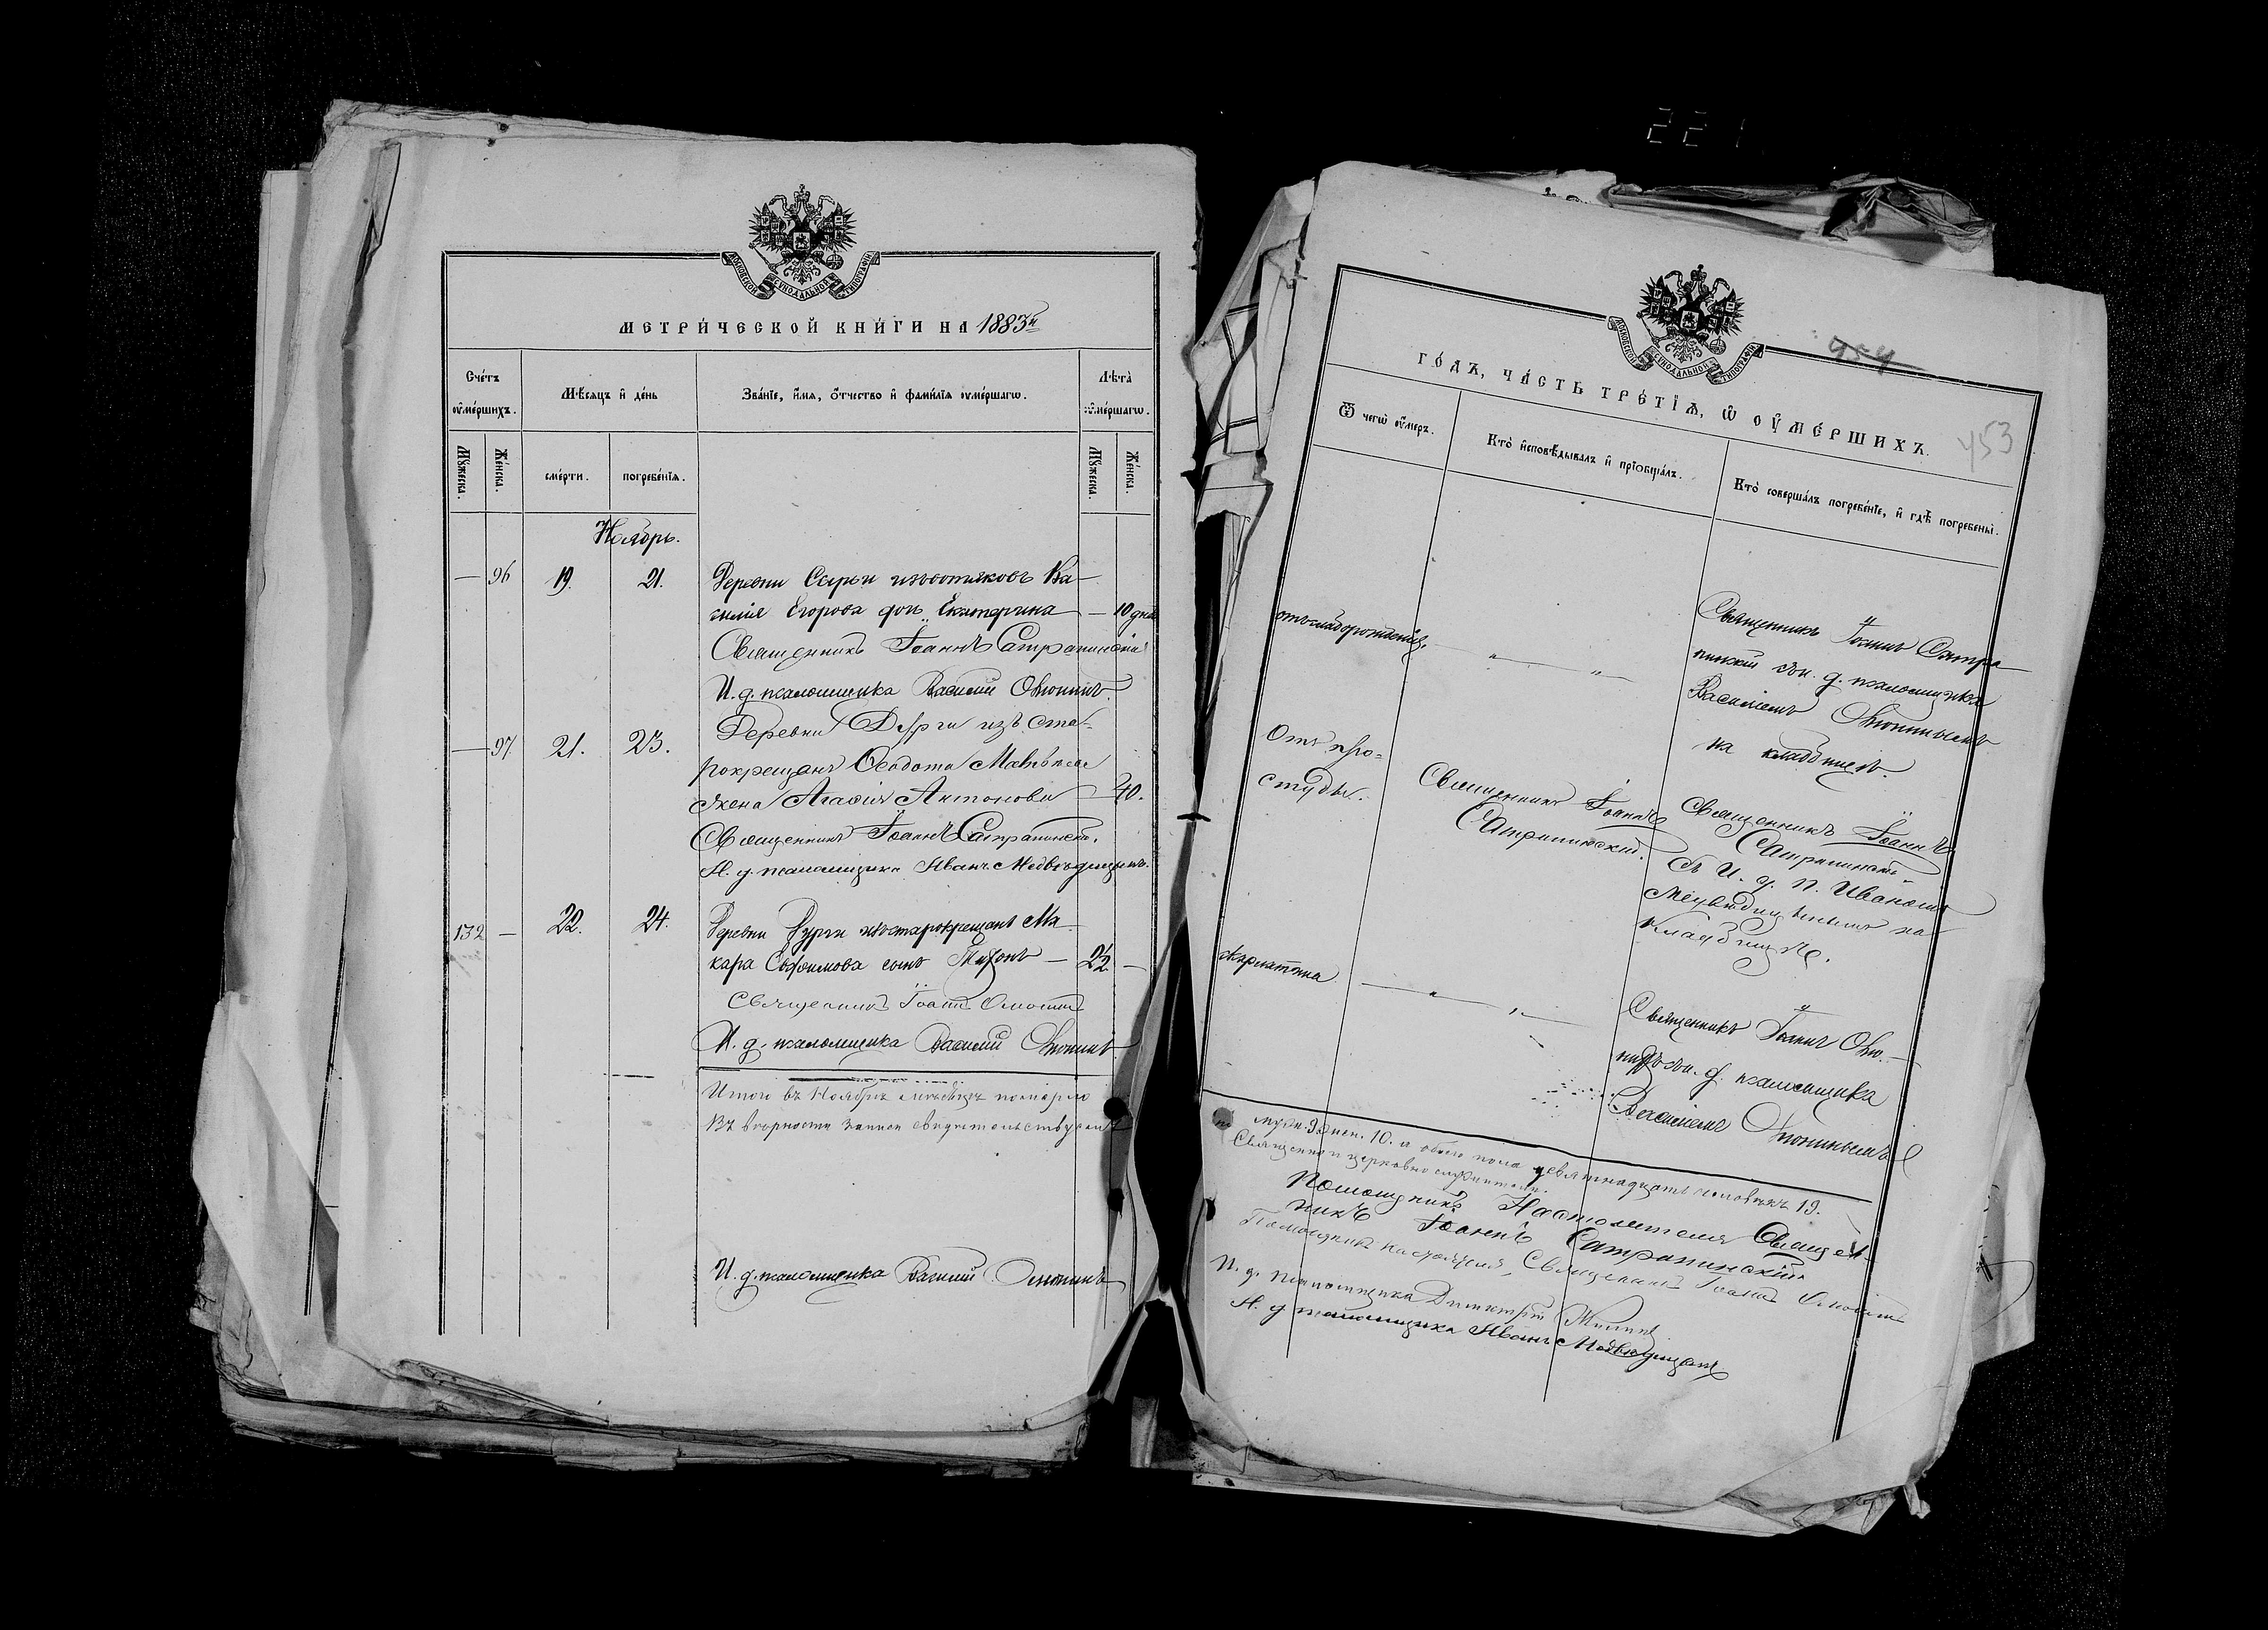 221
МОСКОВСКОЙ СѴНОДАЛЬНОЙ ТИПОГРАФІИ
МЕТРИ́ЧЕСКОЙ КНИ́ГИ НА 1883й
Сче́тъ ᲂу҆ме́ршихъ.
Мѣ́сяцъ и҆ де́нь
Зва́нїе, и҆́мѧ, ѻ҆́тчество и҆ фами́лїѧ ᲂу҆ме́ршагѡ.
Лѣ́та ᲂу҆ме́ршагѡ.
Мꙋ́жеска.
Же́нска.
сме́рти.
погребе́нїѧ.
Мꙋ́жеска.
Же́нска.
Ноябрь.
— 96 19. 21. Деревни Сырьи изъ вотяковъ Ва-
силія Егорова дочь Екатерина — 10 дней
Священникъ Іоаннъ Сатрапинскій
И. д. псаломщика Василій Онюнинъ.
— 97 21. 23. Деревни Дурги изъ ста-
рокрещенъ Ѳеодота Матвѣева
жена Агафія Антонова — 40.
Священникъ Іоаннъ Сатрапинскій.
И. д. псаломщика Иванъ Медвѣдицынъ.
132 — 22. 24. Деревни Дурги изъ старокрещенъ Ма-
кара Ефимова сынъ Тихонъ — 22 —
Священникъ Іоаннъ
И. д. псаломщика Василій Онюнинъ
Итого въ Ноябрѣ мѣсяцѣ померло
Въ вѣрности записи свидѣтельствуемъ
И. д. псаломщика Василій Онюнинъ
МОСКОВСКОЙ СѴНОДАЛЬНОЙ ТИПОГРАФІИ
454
ГО́ДЪ, ЧА́СТЬ ТРЕ́ТЇѦ, Ѡ҆ ОУ҆МЕ́РШИХЪ.
453
Ѿ чегѡ̀ ᲂу҆́меръ.
Кто̀ и҆сповѣ́дывалъ и҆ прїѻбща́лъ.
Кто̀ соверша́лъ погребе́нїе, и҆ гдѣ̀ погребены̀.
отъ слаборожденія
— „ — „ —
Священникъ Іоаннъ Сатра-
пинскій съ и. д. псаломщика
Василіемъ Онюнинымъ
на кладбищѣ.
Отъ про-
студы.
Священникъ Іоаннъ
Сатрапинскій.
Священникъ Іоаннъ
Сатрапинскій
съ И. д. п. Иваномъ
Медвѣдицынымъ на
кладбищѣ.
скарлатина
— „ — „ —
Священникъ Іоаннъ Оню-
нинъ съ и. д. псаломщика
Василіемъ Онюнинымъ
муж. 9. жен. 10. и обоего пола девятнадцать человѣкъ 19.
Священно и церковно служители.
Помощникъ Настоятеля Священ-
никъ Іоаннъ Сатрапинскій.
Помощникъ настоятеля, Священникъ Іоаннъ
И. д. псаломщика Димитрій
И. д. псаломщика Иванъ Медвѣдицынъ